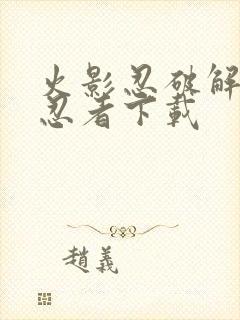 火影忍破解
忍者下載
趙義